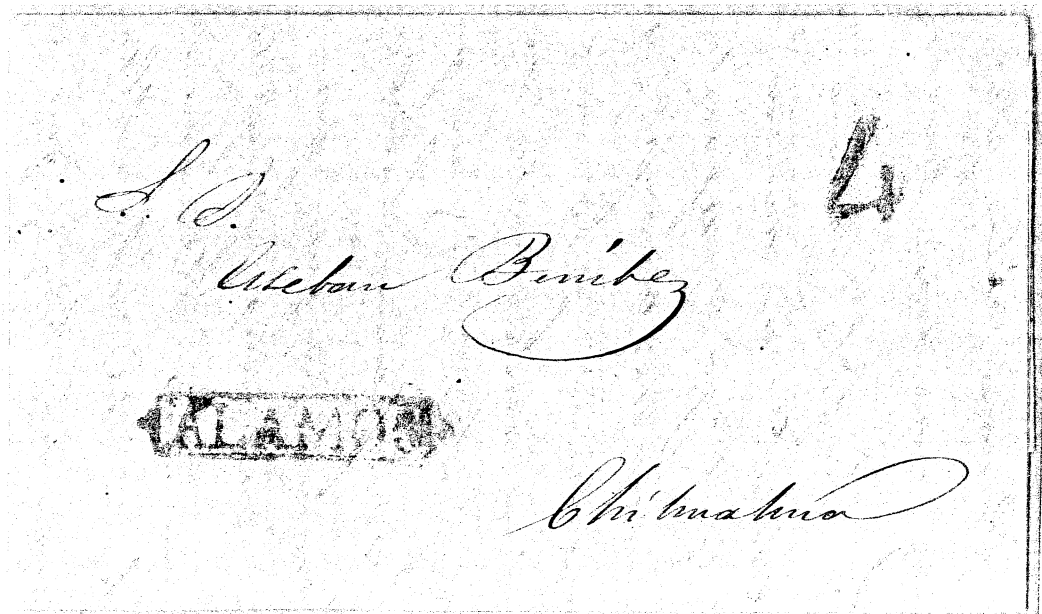 4
S. D.
Esteban Benitez
ALAMOS
Chihuahua